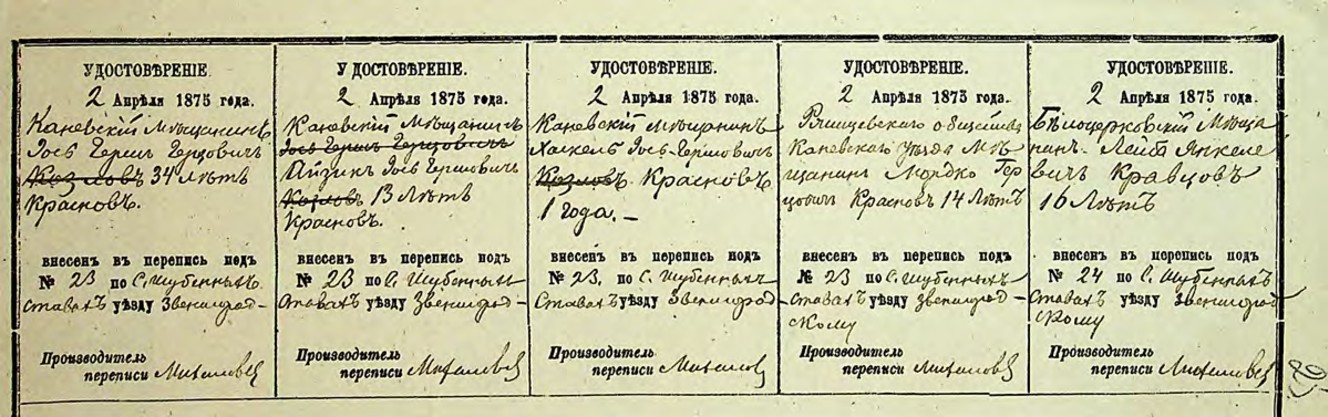 УДОСТОВѢРЕНІЕ.
2 Апрѣля 1875 года.
Каневскій мѣщанинъ
Іосъ Гершъ Герцовичъ
Козловъ 34 Лѣтъ
Красновъ.
внесенъ въ перепись подъ
№ 23 по С. Шубеннымъ
Ставахъ уѣзду Звенигород-
Производитель
переписи
УДОСТОВѢРЕНІЕ.
2 Апрѣля 1875 года.
Каневскій Мѣщанинъ
Іосъ Гершъ Герцовичъ
Айзикъ Іосъ Гершовичъ
Козловъ 13 Лѣтъ
Красновъ.
внесенъ въ перепись подъ
№ 23 по С. Шубеннымъ
Ставахъ уѣзду Звенигород-
Производитель
переписи
УДОСТОВѢРЕНІЕ.
2 Апрѣля 1875 года.
Каневскій мѣщанинъ
Хаскель Іосъ-Гершовичъ
Козловъ. Красновъ
1 года. –
внесенъ въ перепись подъ
№ 23. по С. Шубеннымъ
Ставахъ уѣзду Звенигород-
Производитель
переписи
УДОСТОВѢРЕНІЕ.
2 Апрѣля 1875 года.
Ржищевскаго общества
Каневскаго уѣзда Мѣ-
щанинъ Мордко Гер
цовичъ Красновъ 14 Лѣтъ
внесенъ въ перепись подъ
№ 23 по С. Шубеннымъ
Ставахъ уѣзду Звенигород-
скому
Производитель
переписи
УДОСТОВѢРЕНІЕ.
2 Апрѣля 1875 года.
Бѣлоцерковскій Мѣща
нинъ Лейба Янкеле
вичъ Кравцовъ
16 Лѣтъ
внесенъ въ перепись подъ
№ 24 по С. Шубеннымъ
Ставахъ уѣзду Звенигород
скому
Производитель
переписи